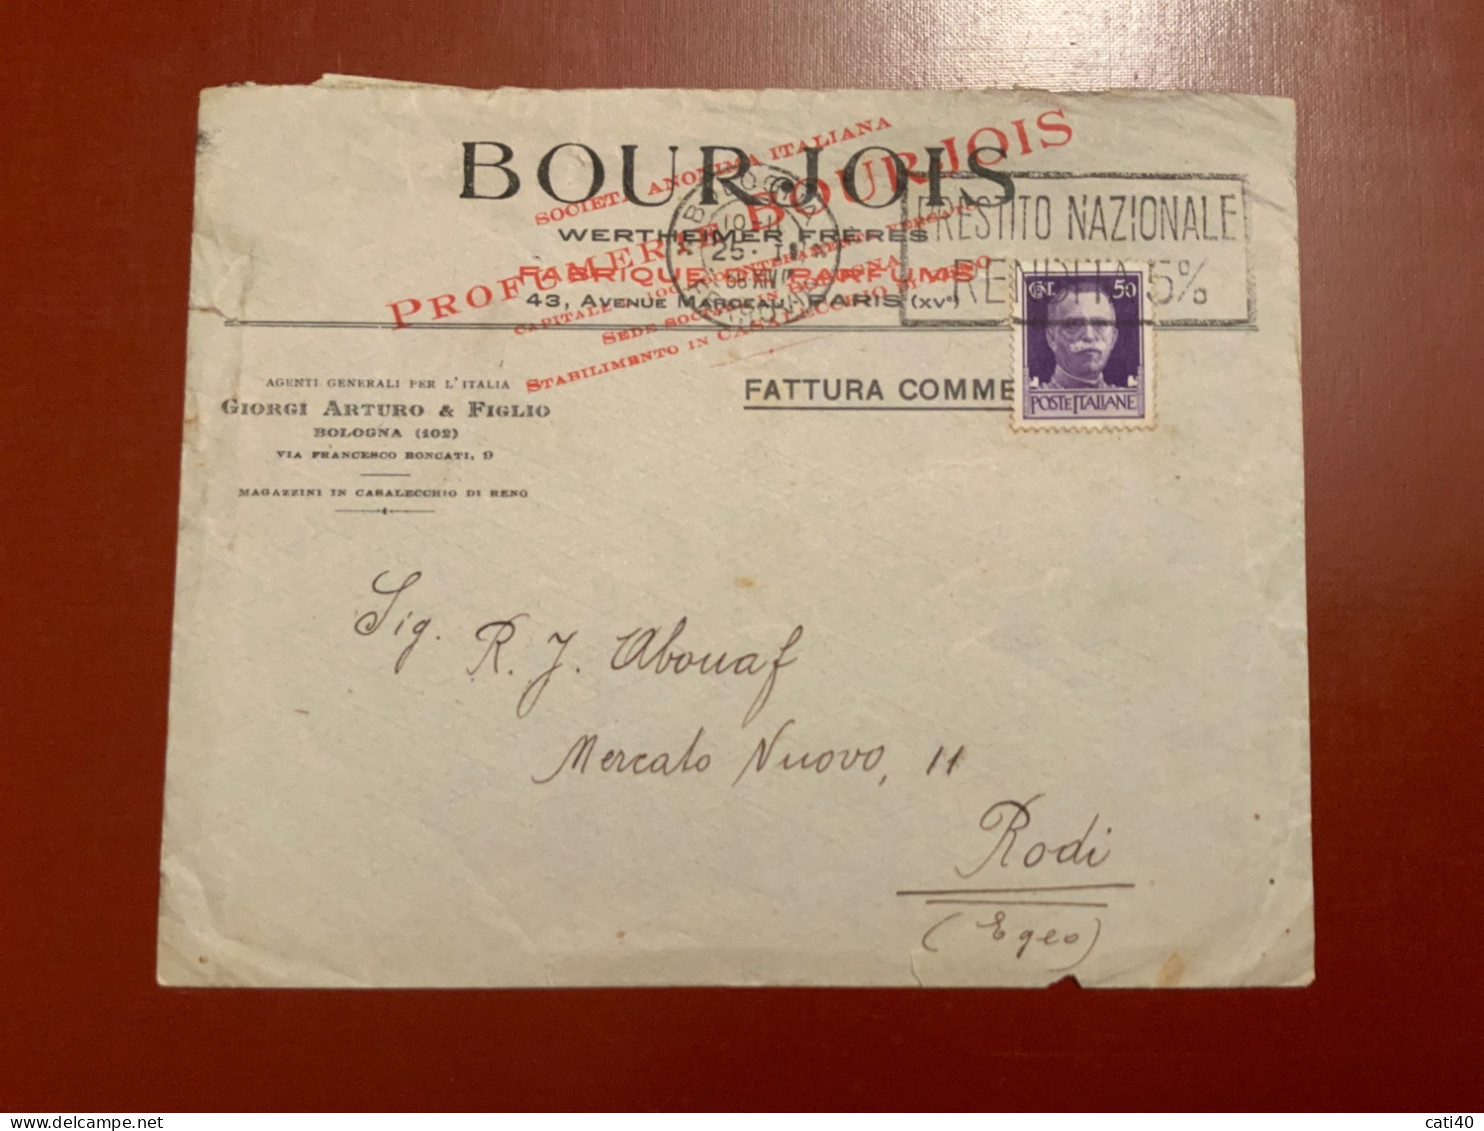 BOURJOIS
WERTHEIMER FRÈRES
FABRIQUE DE PARFUMS
43, AVENUE MARCEAU, PARIS (XVe)
SOCIETÀ ANONIMA ITALIANA
PROFUMERIE BOURJOIS
CAPITALE INTERAMENTE VERSATO
SEDE SOCIALE IN BOLOGNA
STABILIMENTO IN CASALECCHIO DI RENO
BOLOGNA
25
PRESTITO NAZIONALE
RENDITA 5%
CENT. 50
POSTE ITALIANE
FATTURA COMME
AGENTI GENERALI PER L'ITALIA
GIORGI ARTURO & FIGLIO
BOLOGNA (102)
VIA FRANCESCO RONCATI, 9
MAGAZZINI IN CASALECCHIO DI RENO
Sig. R. J. Abouaf
Mercato Nuovo, 11
Rodi
(Egeo)
cati40